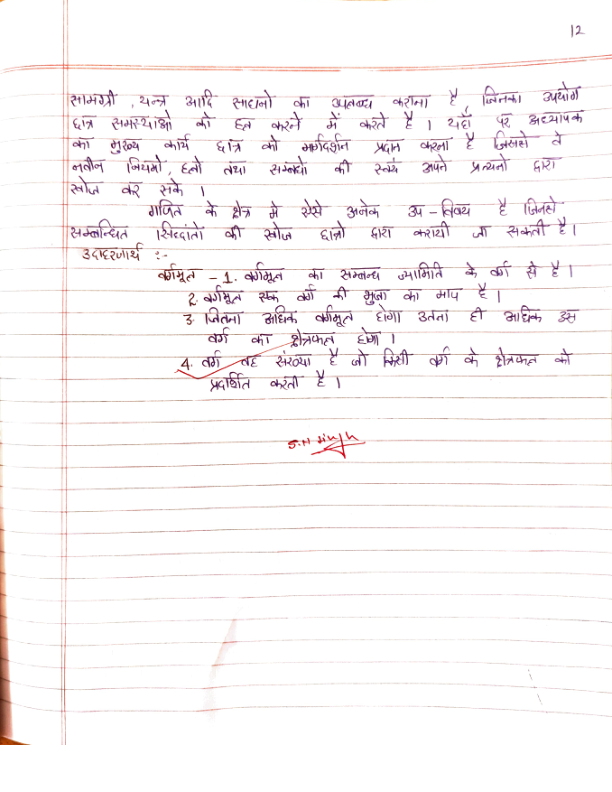 12
सामग्री , यन्त्र आदि साधनो का उपलब्ध कराना है, जिनका उपयोग
छात्र समस्याओ को हल करने में करते है । यहाँ पर अध्यापक
का मुख्य कार्य छात्र को मार्गदर्शन प्रदान करना है जिससे वे
नवीन नियमो, हलो तथा सम्बंधो की स्वयं अपने प्रत्यनो द्वारा
खोज कर सके ।
गणित के क्षेत्र मे ऐसे अनेक उप - विषय है जिनसे
सम्बन्धित सिद्दांतो की खोज छात्रो द्वारा करायी जा सकती है ।
उदाहरणार्थ :-
वर्गमूल - 1. वर्गमूल का सम्बन्ध ज्यामिति के वर्ग से है ।
2. वर्गमूल एक वर्ग की भुजा का माप है ।
3. जितना अधिक वर्गमूल होगा उतना ही अधिक उस
वर्ग का क्षेत्रफल होगा ।
4. वर्ग वह संख्या है जो किसी वर्ग के क्षेत्रफल को
प्रदर्शित करती है ।
S.N Singh